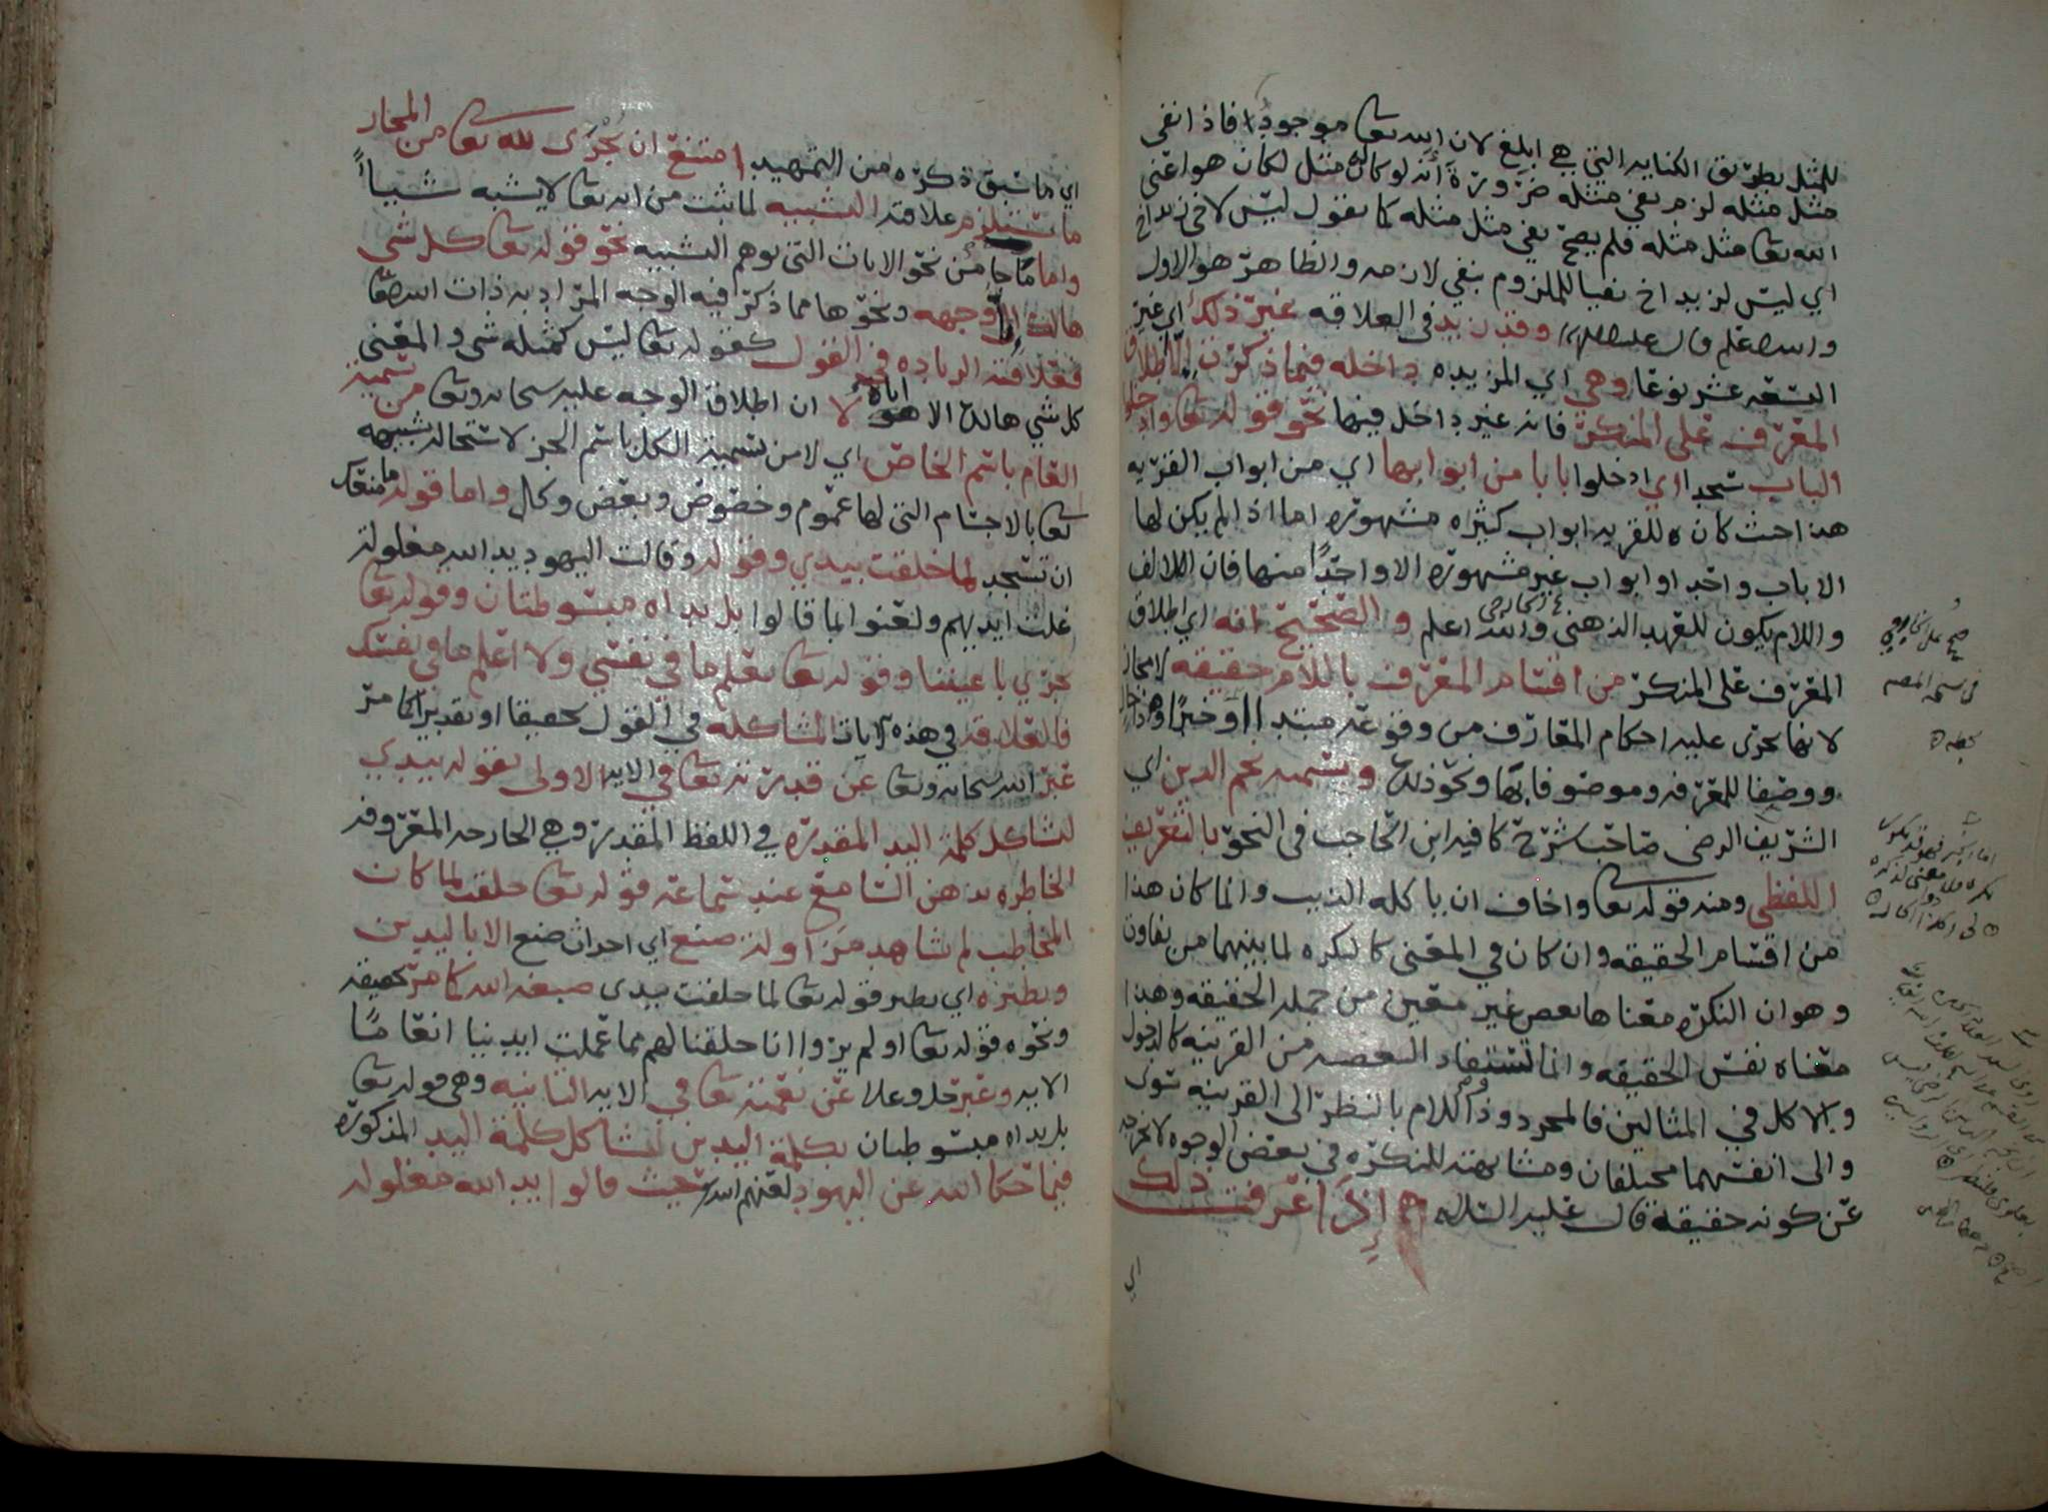 للمثل بطريق الكنايه التي هي ابلغ لان الله تعا موجود فاذا نفي
مثل مثله لزم نفي مثله ضرورة أنه لو كان له مثل لكان هو اعني
الله تعا مثل مثله فلم يصح نفي مثل مثله كما تقول ليس لاخي زيد اخ
اي ليس لزيد اخ نفيا للملزوم بنفي لازمه والظاهر هو الاول
والله اعلم قال عليلم وقد زيد في العلاقه غير ذلك اي غير
التسعه عشر نوعا وهي اي المزيده داخله فيما ذكرت الا اطلاق
المعرف على المنكر فانه غير داخل فيها نحو قوله تعا وادخلوا
الباب سجدا اي ادخلوا بابا من ابوابها اي من ابواب القريه
هذا حيث كان للقريه ابواب كثيره مشهوره اما اذا لم يكن لها
الا باب واحد او ابواب غير مشهوره الا واحدا منها فان الالف
واللام يكون للعهد الذهني والله اعلم والصحيح انه اي اطلاق
المعرف على المنكر من اقسام المعرف باللام حقيقه لا مجاز
لانها تجري عليه احكام المعارف من وقوعه مبتدا او خبرا وذا حال
ووصفا للمعرفه وموصوفا بها ونحو ذلك ويسميه نجم الدين اي
الشريف الرضي صاحب شرح كافيه ابن الحاجب في النحو بالتعريف
اللفظي ومنه قوله تعا واخاف ان ياكله الذيب وانما كان هذا
من اقسام الحقيقه وان كان في المعنى كالنكره لما بينهما من تفاوت
وهو ان النكره معناها بعض غير معين من جمله الحقيقه وهذا
معناه نفس الحقيقه وانما تستفاد البعضيه من القرينه كالدخول
والاكل في المثالين فالمجرد وذو اللام بالنظر الى القرينه سوى
والى انفسهما مختلفان ومشابهته للنكره في بعض الوجوه لا تخرجه
عن كونه حقيقة قال عليه السلام إذا عرفت ذلك
اي ما سبق ذكره من التمهيد امتنع ان يجرى لله تعا من المجاز
ما تستلزم علاقته التشبيه لما ثبت من انه تعا لا يشبه شيئاً
واما ما جا من نحو الايات التي توهم التشبيه نحو قوله تعا كل شي
هالك الا وجهه ونحوها مما ذكر فيه الوجه المراد به ذات الله تعا
فعلاقته الزياده في القول كقوله تعا ليس كمثله شي والمعنى
كل شي هالك الا اياه لا ان اطلاق الوجه عليه سبحانه وتعا من تسمية
العام باسم الخاص اي لا من تسمية الكل باسم الجز لاستحاله تشبيهه
تعا بالاجسام التي لها عموم وخصوص وبعض وكل واما قوله ما منعك
ان تسجد لما خلقت بيدي وقوله وقالت اليهود يد الله مغلولة
غلت ايديهم ولعنوا بما قالوا بل يداه مبسوطتان وقوله تعا
تجري باعيننا وقوله تعا تعلم ما في نفسي ولا اعلم ما في نفسك
فالعلاقه في هذه الايات المشاكله في القول تحقيقا او تقديرا كما مر
عبر الله سبحانه وتعا عن قدرته تعا في الايه الاولى بقوله بيدي
لتشاكل كلمة اليد المقدره في اللفظ المقدرة وهي الجارحه المعروفه
الخاطره بذهن السامع عند سماعه قوله تعا خلقت لما كان
المخاطب لم يشاهد مزاولة صنع اي احداث صنع الا باليدين
ونظيره اي نظير قوله تعا لما خلقت بيدي صبغه الله كما مر تحقيقه
ونحوه قوله تعا او لم يروا انا خلقنا لهم مما عملت ايدينا انعاما
الايه وعبر جل وعلا عن نعمته تعا في الايه الثانيه وهي قوله تعا
بل يداه مبسوطتان بكلمة اليدين لتشاكل كلمة اليد المذكوره
فيما حكا الله عن اليهود لعنهم الله حيث قالوا يد الله مغلوله